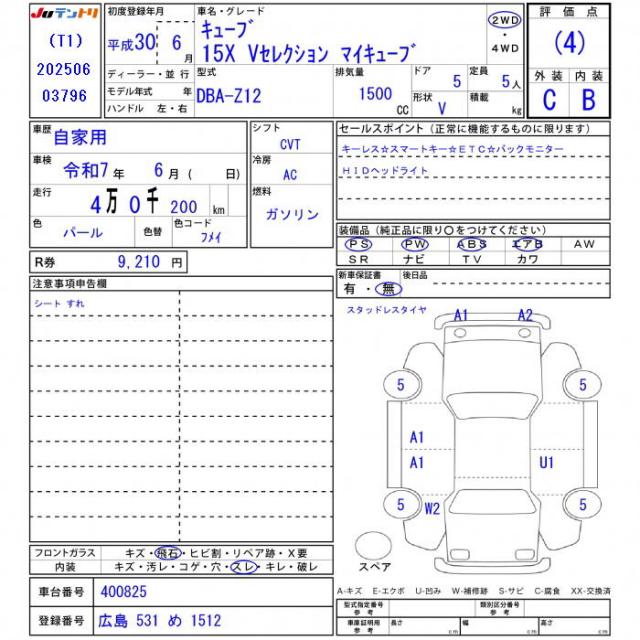 JUテントリ
(T1)
202506
03796
初度登録年月
平成30年
6月
ディーラー・並行
モデル年式 年
ハンドル 左・右
車名・グレード
キューブ
15X Vセレクション マイキューブ
2WD
・
4WD
型式
DBA-Z12
排気量
1500
CC
ドア
5
形状
V
定員
5人
積載
kg
評価点
(4)
外装 内装
C B
車歴
自家用
車検
令和7年 6月( 日)
走行
4万 0千 200 km
色
パール
色替
色コード
フメイ
シフト
CVT
冷房
AC
燃料
ガソリン
R券 9,210 円
セールスポイント(正常に機能するものに限ります)
キーレス☆スマートキー☆ETC☆バックモニター
HIDヘッドライト
装備品(純正品に限り○をつけてください)
PS PW ABS エアB AW
SR ナビ TV カワ
新車保証書
有・無
後日品
注意事項申告欄
シート すれ
スタッドレスタイヤ
A1 A2
5 5
A1
A1 U1
5 W2 5
スペア
フロントガラス キズ・飛石・ヒビ割・リペア跡・X要
内装 キズ・汚レ・コゲ・穴・スレ・キレ・破レ
A-キズ E-エクボ U-凹み W-補修跡 S-サビ C-腐食 XX-交換済
車台番号 400825
登録番号 広島 531 め 1512
型式指定番号
類別区分番号
車庫証明用
参考
長さ cm 幅 cm 高さ cm